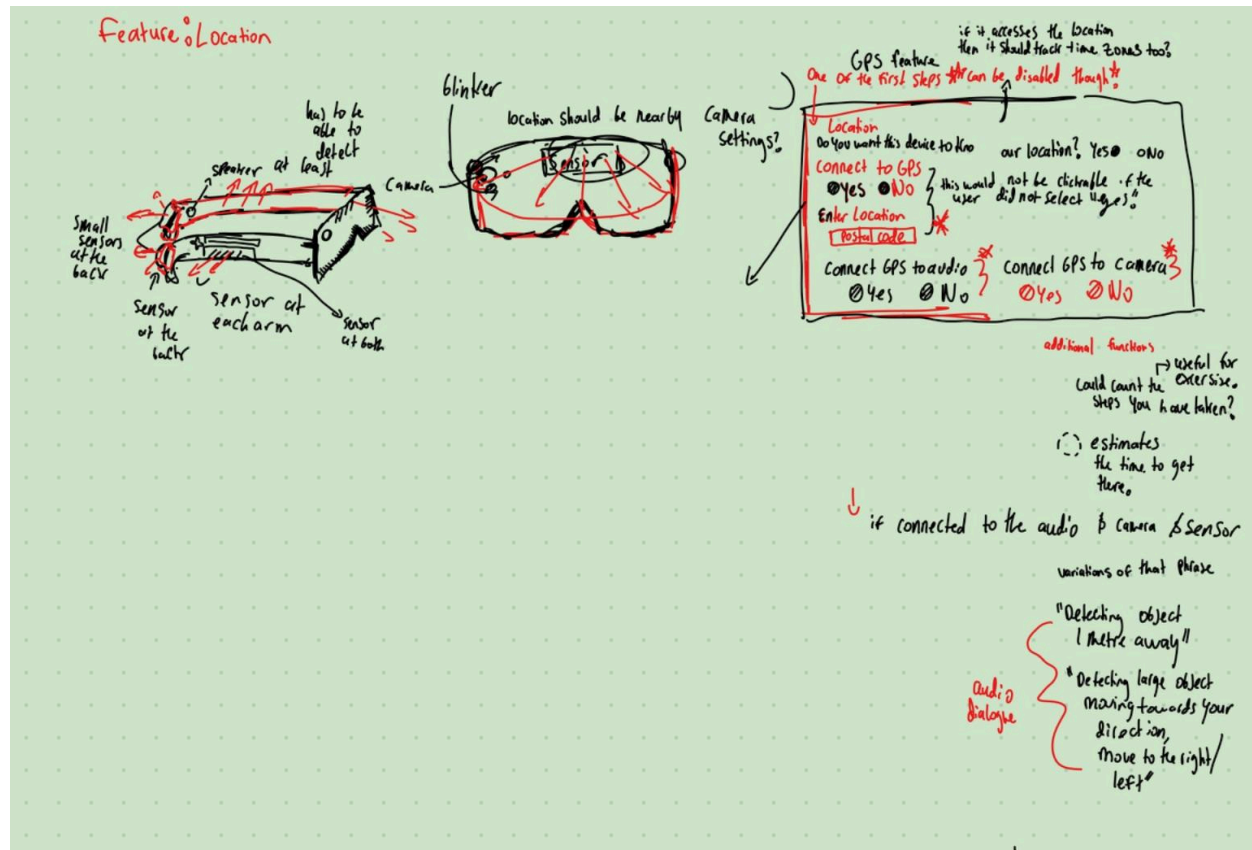 Feature: Location
has to be
able to
detect
at least
speaker
small
sensors
at the
back
sensor
at the
back
sensor at
each arm
sensor
at both
blinker
Camera
location should be nearby
Sensor
Camera
settings?
if it accesses the location
then it should track time zones too?
GPS feature
One of the first steps ** can be disabled though*
Location
Do you want this device to kno
our location? Yes No
Connect to GPS
Yes No
this would not be clickable if the
user did not select "yes"
Enter Location
Postal code
Connect GPS to audio
Yes No
Connect GPS to Camera
Yes No
additional functions
useful for
exersize.
Could count the
steps you have taken?
estimates
the time to get
there.
if connected to the audio & camera & sensor
variations of that phrase
"Detecting object
1 metre away"
"Detecting large object
moving towards your
direction,
move to the right/
left"
audio
dialogue